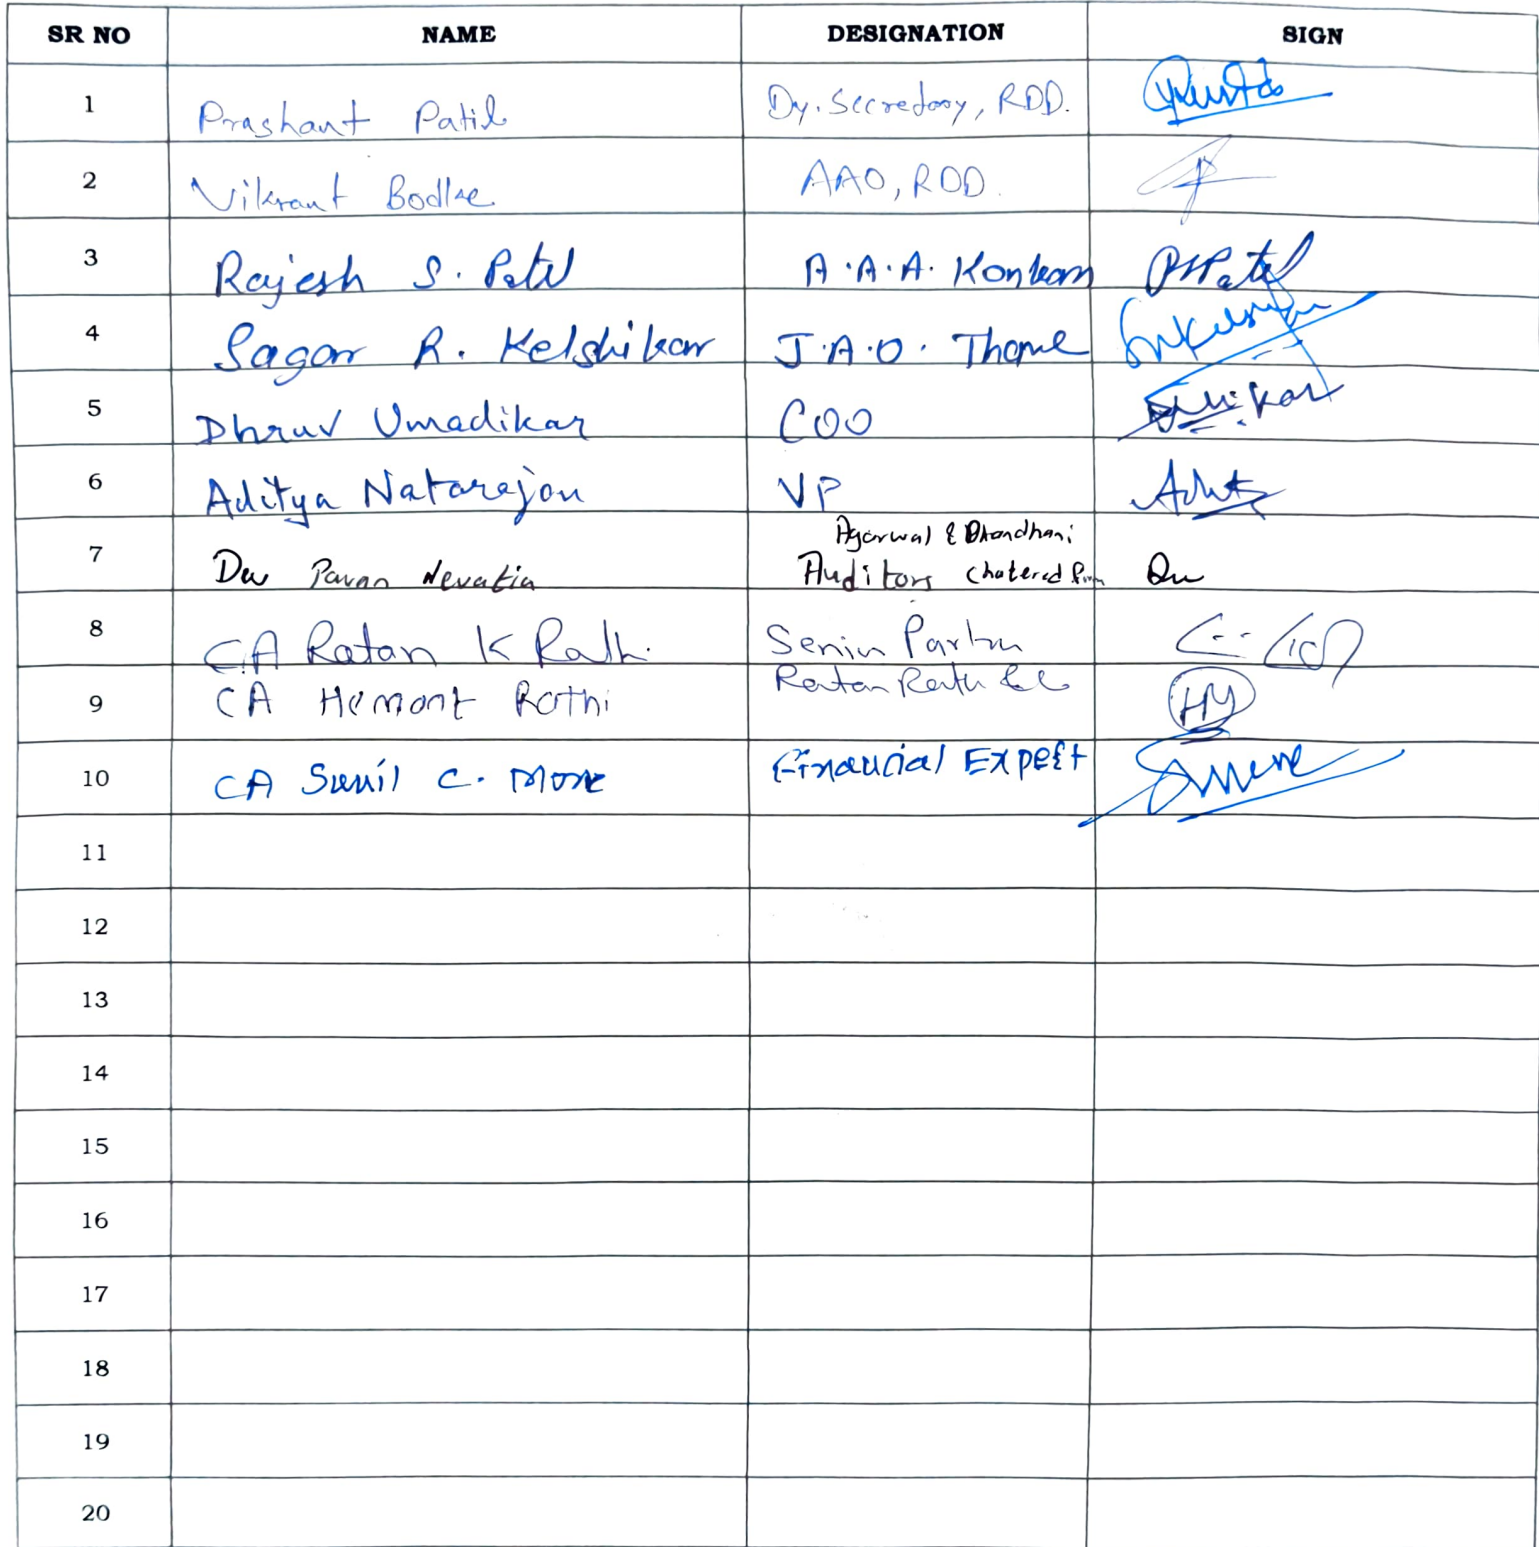 SR NO NAME DESIGNATION SIGN
1 Prashant Patil Dy. Secretary, RDD.
2 Vikrant Bodke AAO, RDD.
3 Rajesh S. Patil A.A.A. Konkan
4 Sagar R. Kelshikar J.A.O. Thane
5 Dhruv Umadikar COO
6 Aditya Natarajan VP
Agarwal & Dhandhani
7 Dev Pavan Nevatia Auditors Chatered firm
8 CA Ratan K Rathi Senior Partner
9 CA Hemant Rathi Ratan Rathi & Co
10 CA Sunil C. More Financial Expert
11
12
13
14
15
16
17
18
19
20